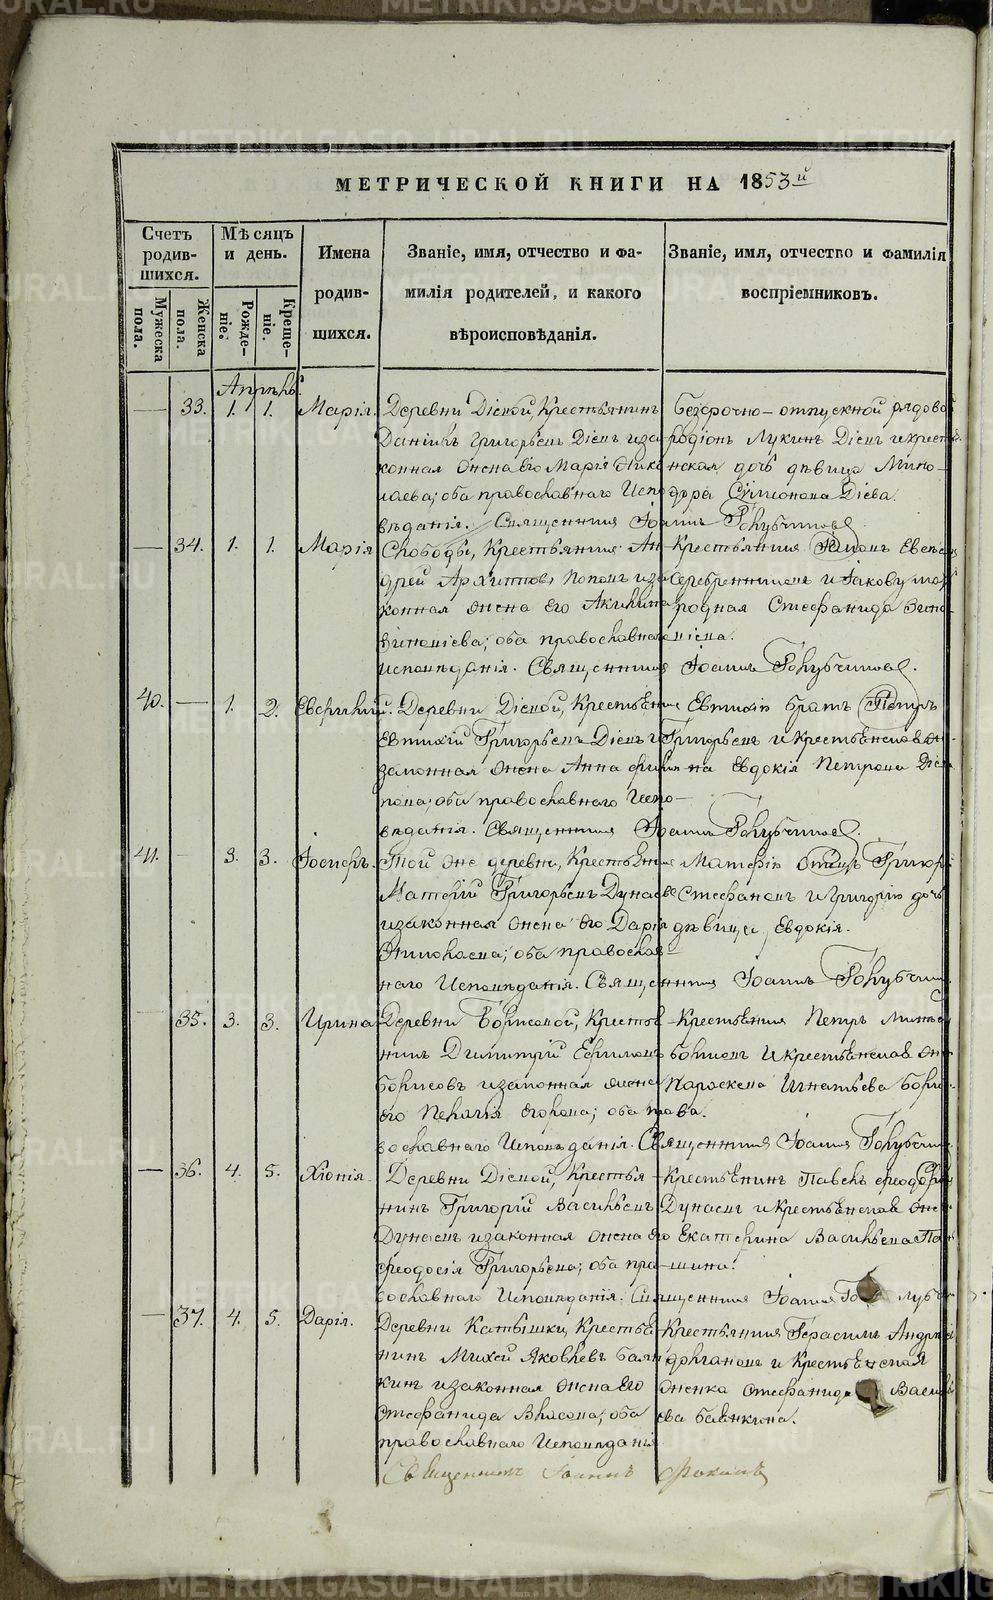 МЕТРИЧЕСКОЙ КНИГИ НА 1853й
Счетъ родив- шихся.
Мѣсяцъ и день.
Имена родив- шихся.
Званіе, имя, отчество и фа- милія родителей, и какого вѣроисповѣданія.
Званіе, имя, отчество и фамилія воспріемниковъ.
Мужеска пола.
Женска пола.
Рожде- ніе.
Креще- ніе.
Апрѣль.
— 33. 1. 1. Марія. Деревни Діевой, Крестьянинъ
Даніилъ Григорьевъ Діевъ и за-
конная жена его Марія Нико-
лаева; оба православнаго Испо-
вѣданія. Священникъ Іоаннъ Голубчиковъ.
Безсрочно-отпускной рядовой
Родіонъ Лукинъ Діевъ и крест-
нская дочь дѣвица
Сѵмеонова Діева.
— 34. 1. 1. Марія Слободы, Крестьянинъ Ан-
дрей Архиповъ Поповъ и за-
конная жена его Акилина
Зиновіева; оба православнаго
исповѣданія. Священникъ Іоаннъ Голубчиковъ.
Крестьянинъ
Серебренниковъ и Іакову
родная Стефанида Зино-
віева.
40. — 1. 2. Евтихій. Деревни Діевой, Крестьянинъ
Евтихій Григорьевъ Діевъ и
законная жена Анна
пова; оба православнаго Испо-
вѣданія. Священникъ Іоаннъ Голубчиковъ.
Евтихію братъ Петръ
Григорьевъ и крестьянская же-
на Евдокія Петрова Діева
41. — 3. 3. Іосифъ. Той же деревни, Крестьянинъ
Матфій Григорьевъ Дунаевъ
и законная жена его Дарія
Тимофеева; оба православ-
наго Исповѣданія. Священникъ Іоаннъ Голубчик
Матфію Отецъ Григорій
Стефановъ и Григорію дочь
дѣвица, Евдокія.
— 35. 3. 3. Ирина Деревни Борисовой, Крестья-
нинъ Димитрій Ефимовъ
Борисовъ и законная жена
его Пелагія Егорова; оба пра-
вославнаго Исповѣданія. Священникъ Іоаннъ Голубчик
Крестьянинъ Петръ
Борисовъ и крестьянская же-
Параскева Игнатьева Бори-
ва.
— 36. 4. 5. Хіонія. Деревни Діевой, Крестья-
нинъ Григорій Васильевъ
Дунаевъ и законная жена его
Феодосія Григорьева; оба пра-
вославнаго Исповѣданія. Священникъ Іоаннъ Голубч
Крестьянинъ Павелъ Феодоровъ
Дунаевъ и крестьянская жен
Екатерина Васильева Па-
шина.
— 37. 4. 5. Дарія. Деревни Катышки, Крестья-
нинъ Михей Яковлевъ Баян-
кинъ и законная жена его
Стефанида Власова; оба
православнаго Исповѣданія
Крестьянинъ Герасимъ Андреевъ
Долгановъ и Крестьянская
женка Стефанида Василь-
ева Баянкина.
Священникъ Іоаннъ Фокинъ